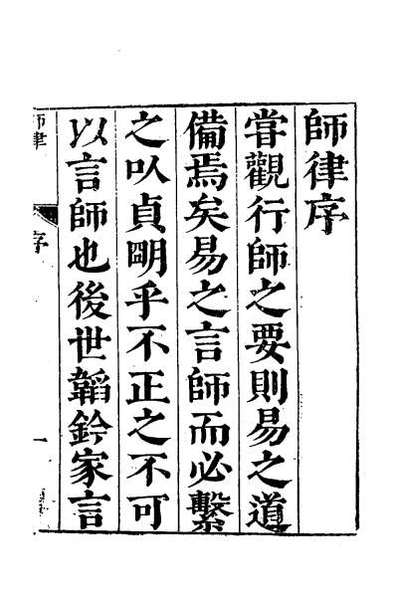 師律序
甞觀行師之要則易之道
備焉矣易之言師而必繫
之以貞明乎不正之不可
以言師也後世韜鈐家言
師律
序
一